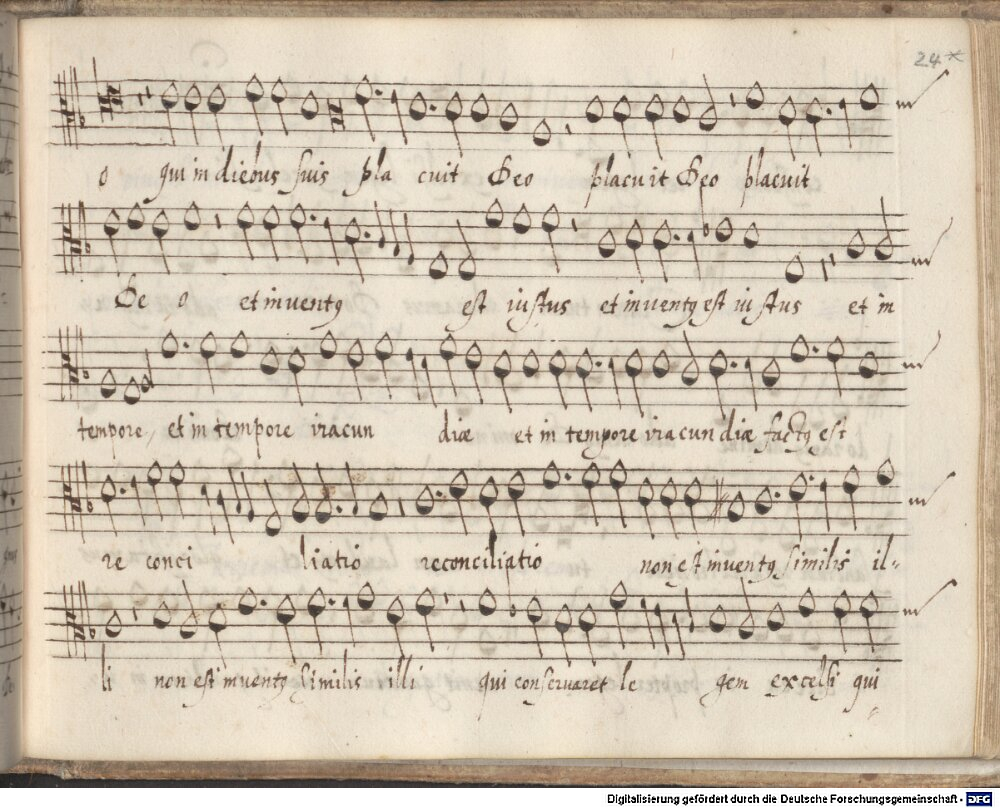 24
o qui in diebus suis pla cuit Deo placuit Deo placuit
De o et inventꝯ est iustus et inventꝯ est iu stus et in
tempore, et in tempore iracun diæ et in tempore iracun diæ factꝯ est
re conci liatio reconciliatio non est inventꝯ similis il-
li non est inventꝯ similis illi qui conservaret le gem excelsi qui
Digitalisierung gefördert durch die Deutsche Forschungsgemeinschaft - DFG